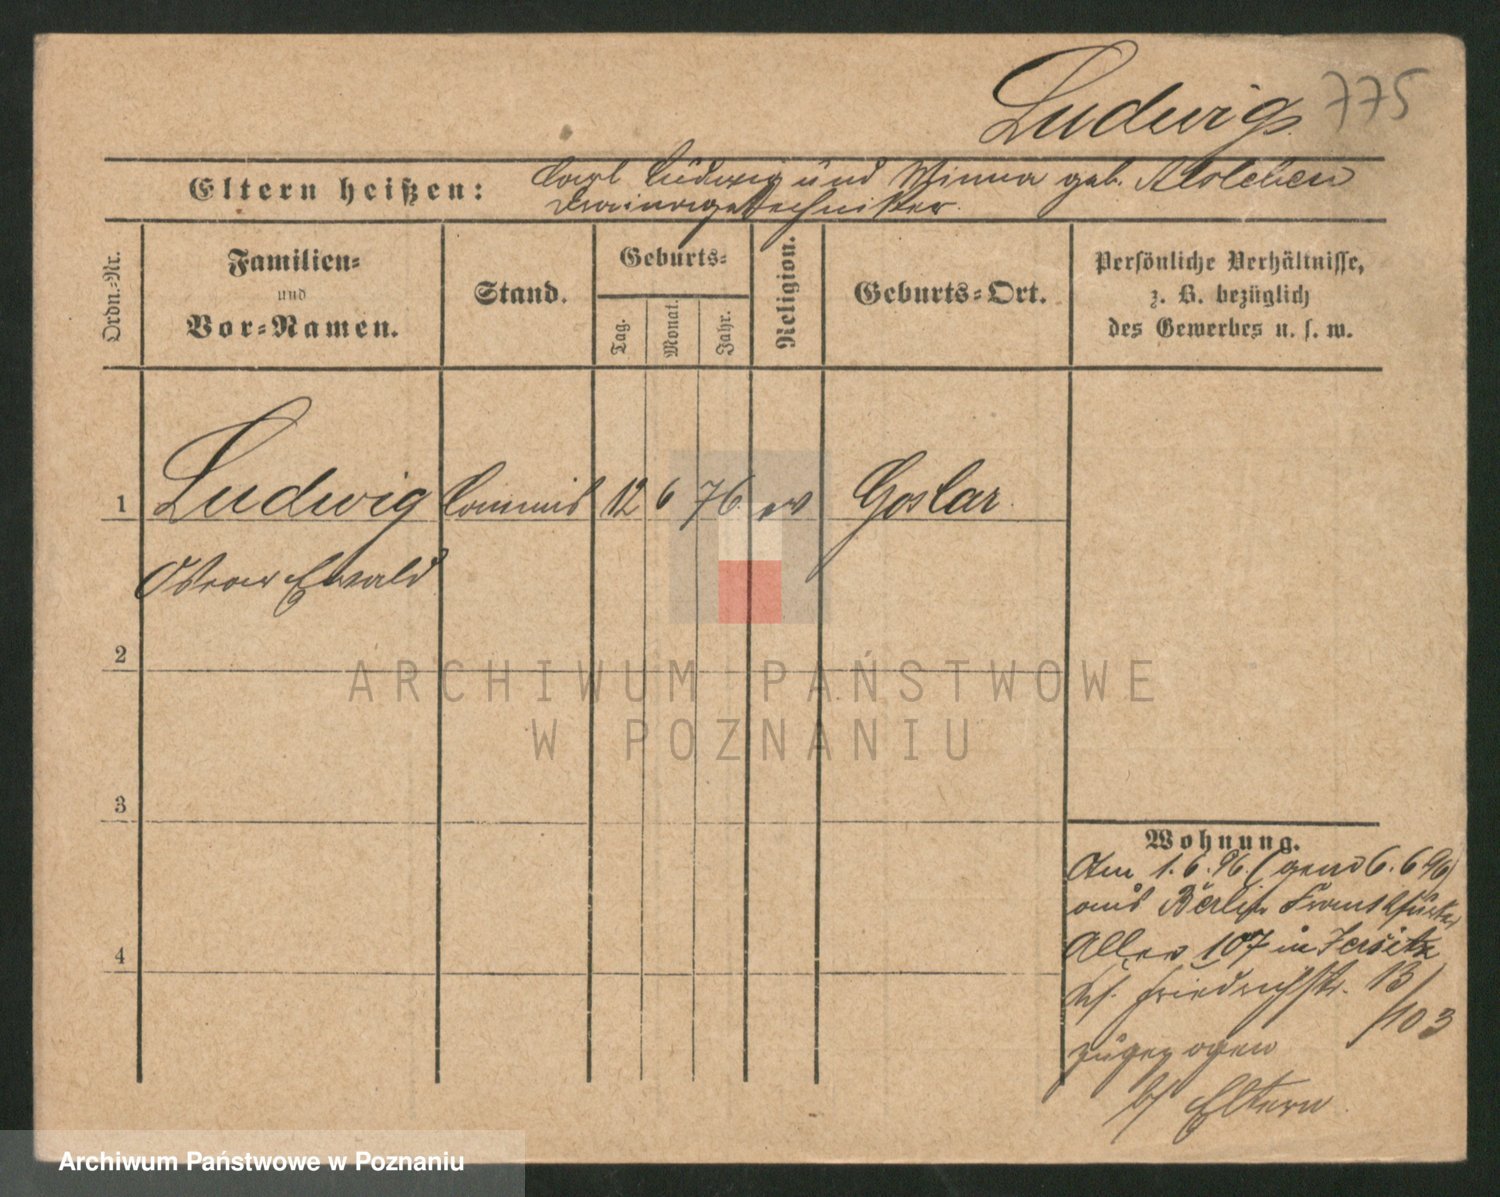 Ludwig 775
Eltern heißen: Carl Ludwig und Minna geb.
Drainagetechniker.
Ordn.-Nr.
Familien-
und
Vor-Namen.
Stand.
Geburts-
Tag.
Monat.
Jahr.
Religion.
Geburts-Ort.
Persönliche Verhältnisse,
z. B. bezüglich
des Gewerbes u. s. w.
1 Ludwig Commis 12 6 76 ev Goslar.
Oskar Ewald
2
ARCHIWUM PAŃSTWOWE
W POZNANIU
3
4
Wohnung.
Am 1.6.96. (gem 6.6.96)
aus Berlin Frankfurter
Allee 107 in Jersitz
Friedrichstr. 13/
/103
zugezogen
b/ Eltern.
Archiwum Państwowe w Poznaniu